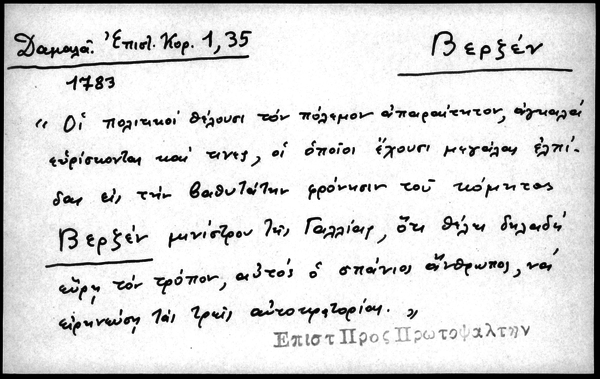 Δαμαλᾶ. Ἐπιστ. Κορ. 1, 35
Βερξέν
1783
“ Οἱ πολιτικοί θέλουσι τόν πόλεμον ἀπαραίτητον, ἀγκαλά
εὑρίσκονται καί τινες, οἱ ὁποῖοι ἔχουσι μεγάλας ἐλπί-
δας εἰς τήν βαθυτάτην φρόνησιν τοῦ κόμητος
Βερξέν μινίστρου τῆς Γαλλίας, ὅτι θέλει δηλαδή
εὕρῃ τόν τρόπον, αὐτός ὁ σπάνιος ἄνθρωπος, νά
εἰρηνεύσῃ τάς τρεῖς αὐτοκρατορίας. ”
Επιστ Προς Πρωτοψαλτην